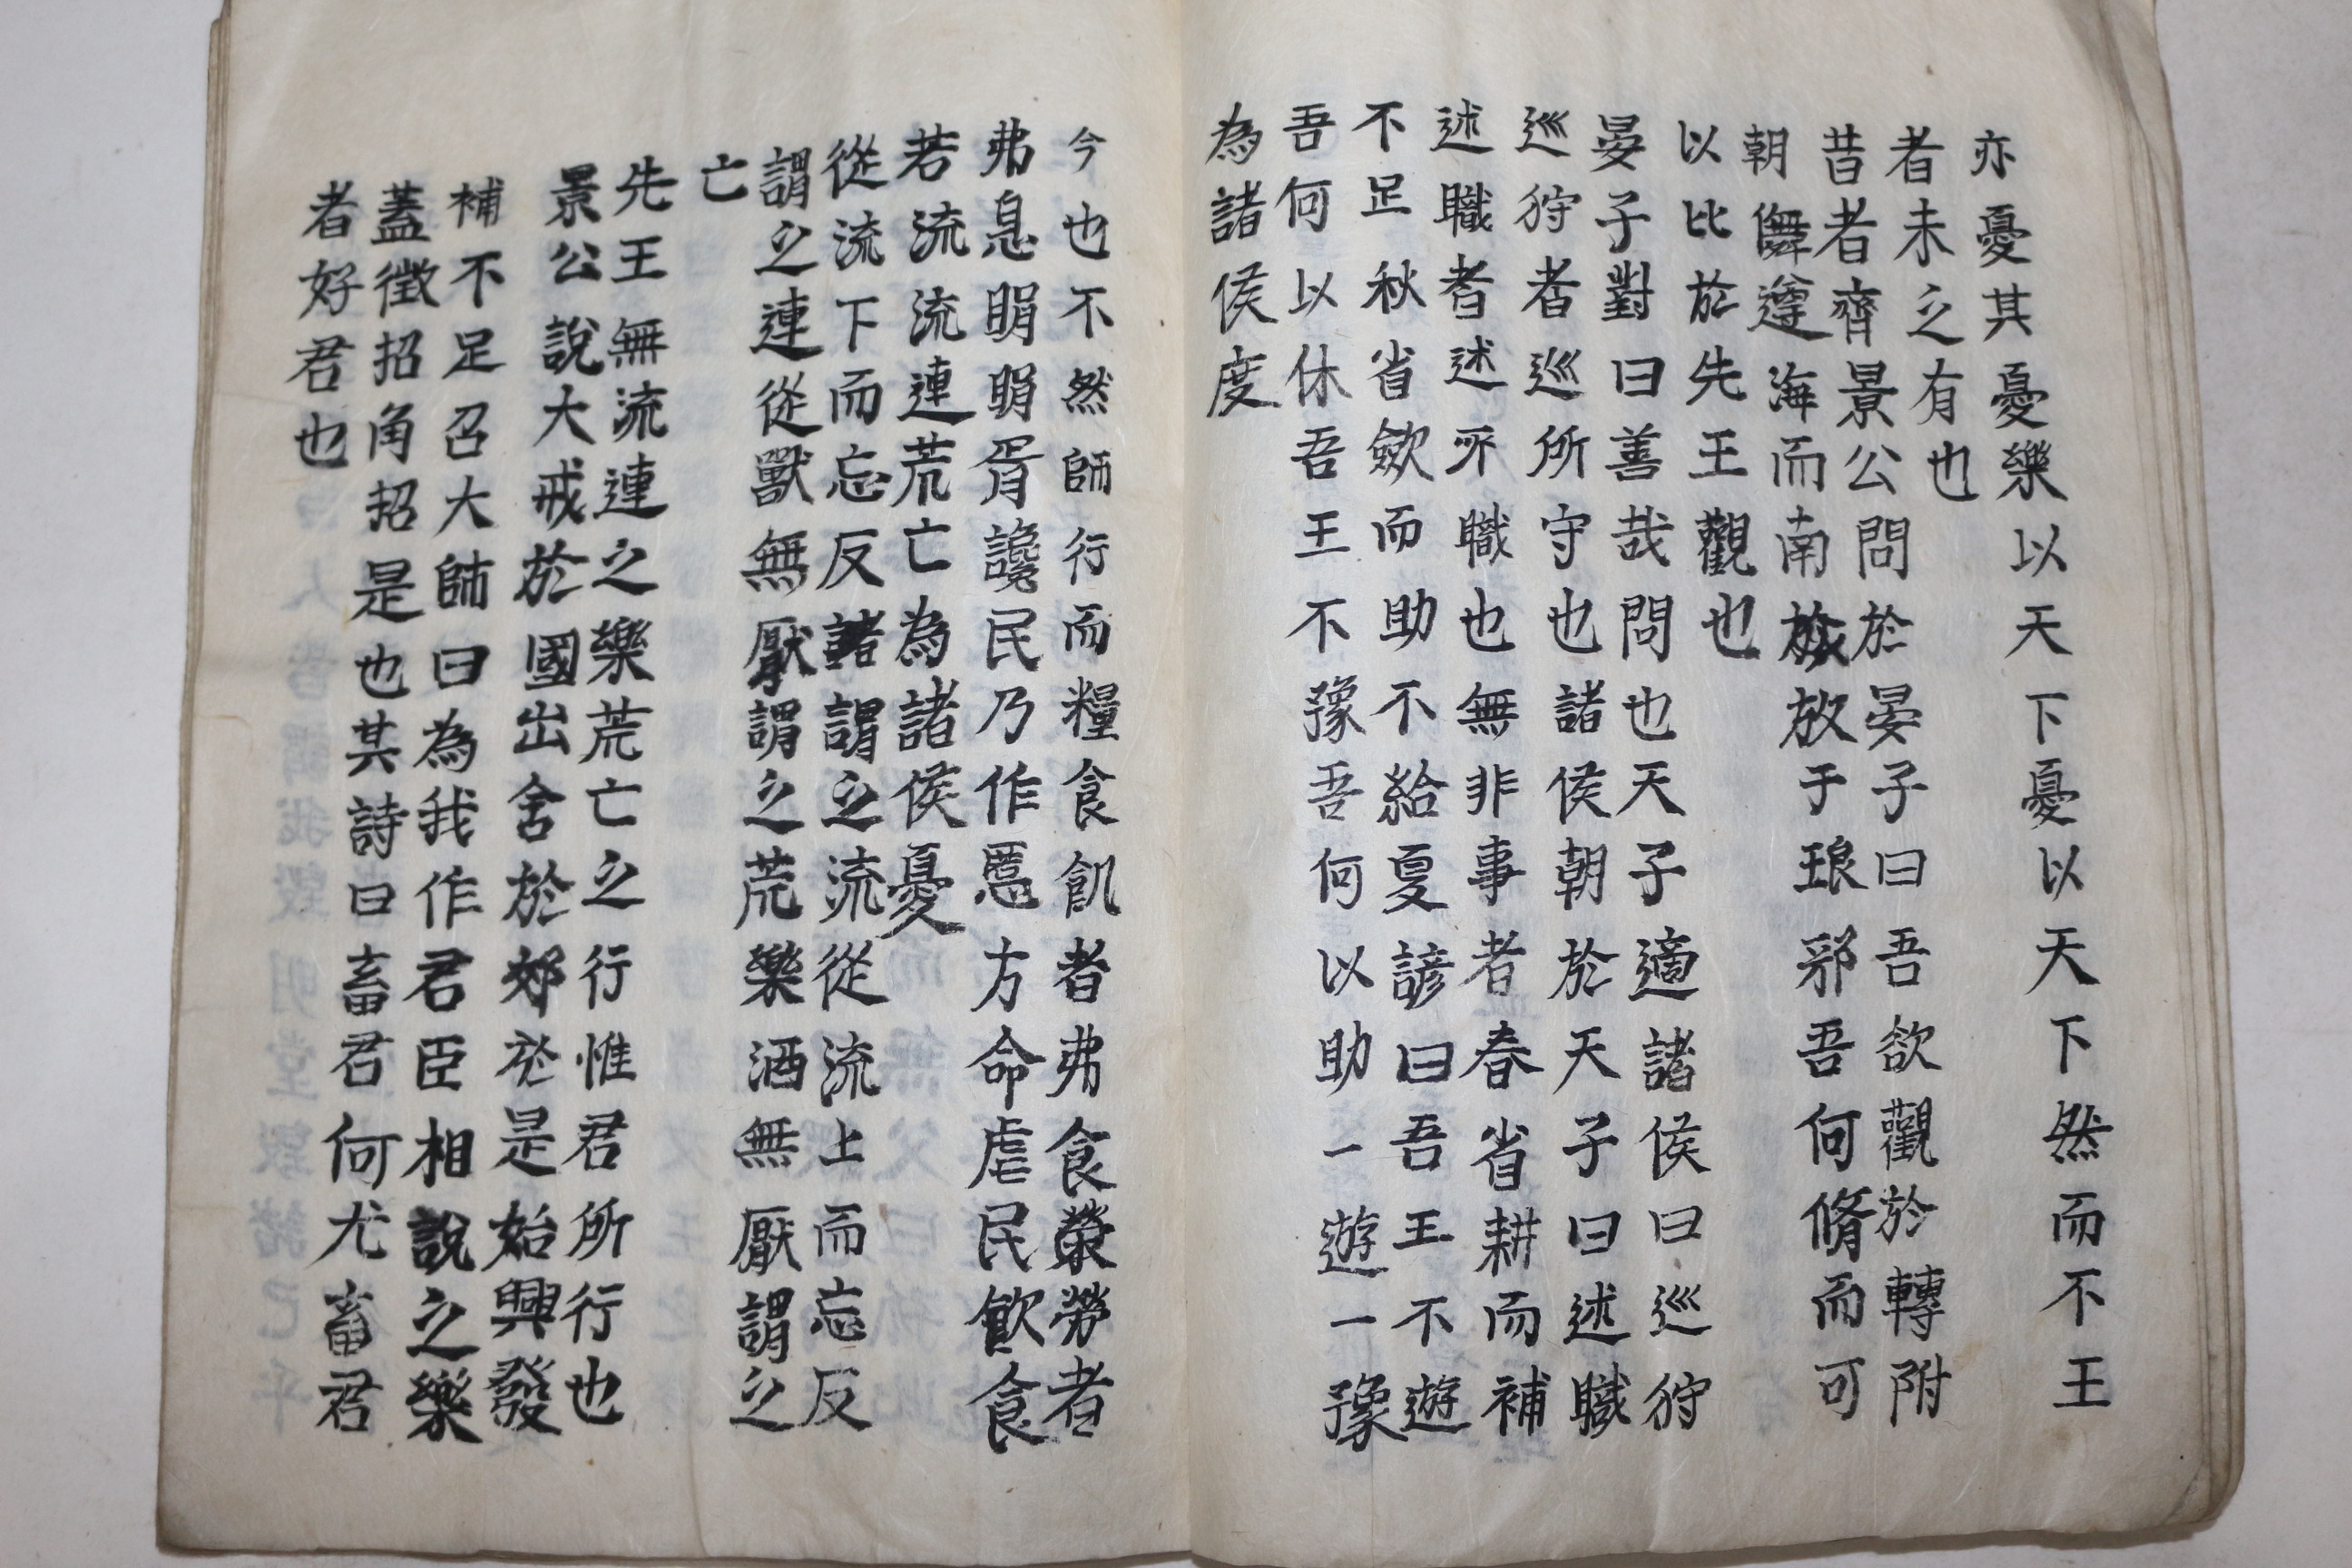 亦憂其憂樂以天下憂以天下然而不王
者未之有也
昔者齊景公問於晏子曰吾欲觀於轉附
朝儛遵海而南放于琅邪吾何脩而可
以比於先王觀也
晏子對曰善哉問也天子適諸侯曰巡狩
巡狩者巡所守也諸侯朝於天子曰述職
述職者述所職也無非事者春省耕而補
不足秋省斂而助不給夏諺曰吾王不遊
吾何以休吾王不豫吾何以助一遊一豫
為諸侯度
今也不然師行而糧食飢者弗食勞者
弗息睊睊胥讒民乃作慝方命虐民飲食
若流流連荒亡為諸侯憂
從流下而忘反諸謂之流從流上而忘反
謂之連從獸無厭謂之荒樂酒無厭謂之
亡
先王無流連之樂荒亡之行惟君所行也
景公說大戒於國出舍於郊於是始興發
補不足召大師曰為我作君臣相說之樂
蓋徵招角招是也其詩曰畜君何尤畜君
者好君也